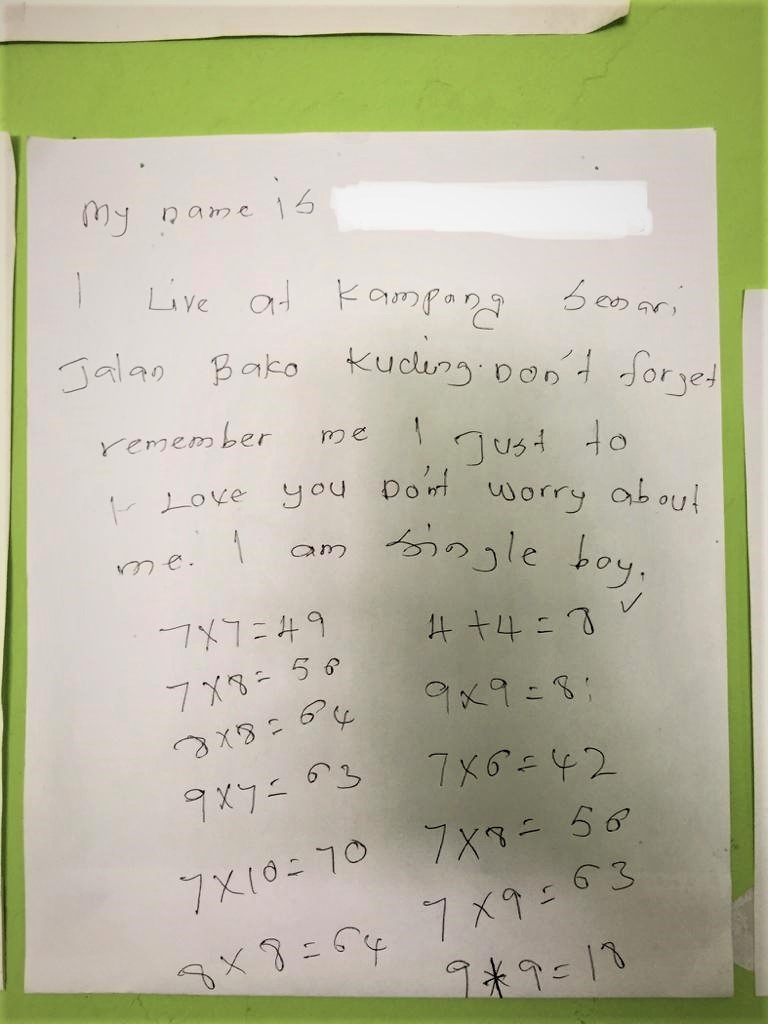 My name is
I Live at Kampong Senari
Jalan Bako Kuding. Don't forget
remember me I Just to
I Love you Don't worry about
me. I am single boy.
7×7=49 4+4=8 ✓
7×8=56 9×9=81
8×8=64
9×7=63 7×6=42
7×10=70 7×8=56
7×9=63
8×8=64 9*9=18